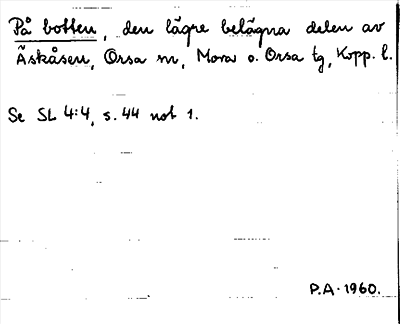 På botten, den lägre belägna delen av
Äskåsen, Orsa sn, Mora o. Orsa tg, Kopp. l.
Se SL 4:4, s. 44 not 1.
P.A. 1960.